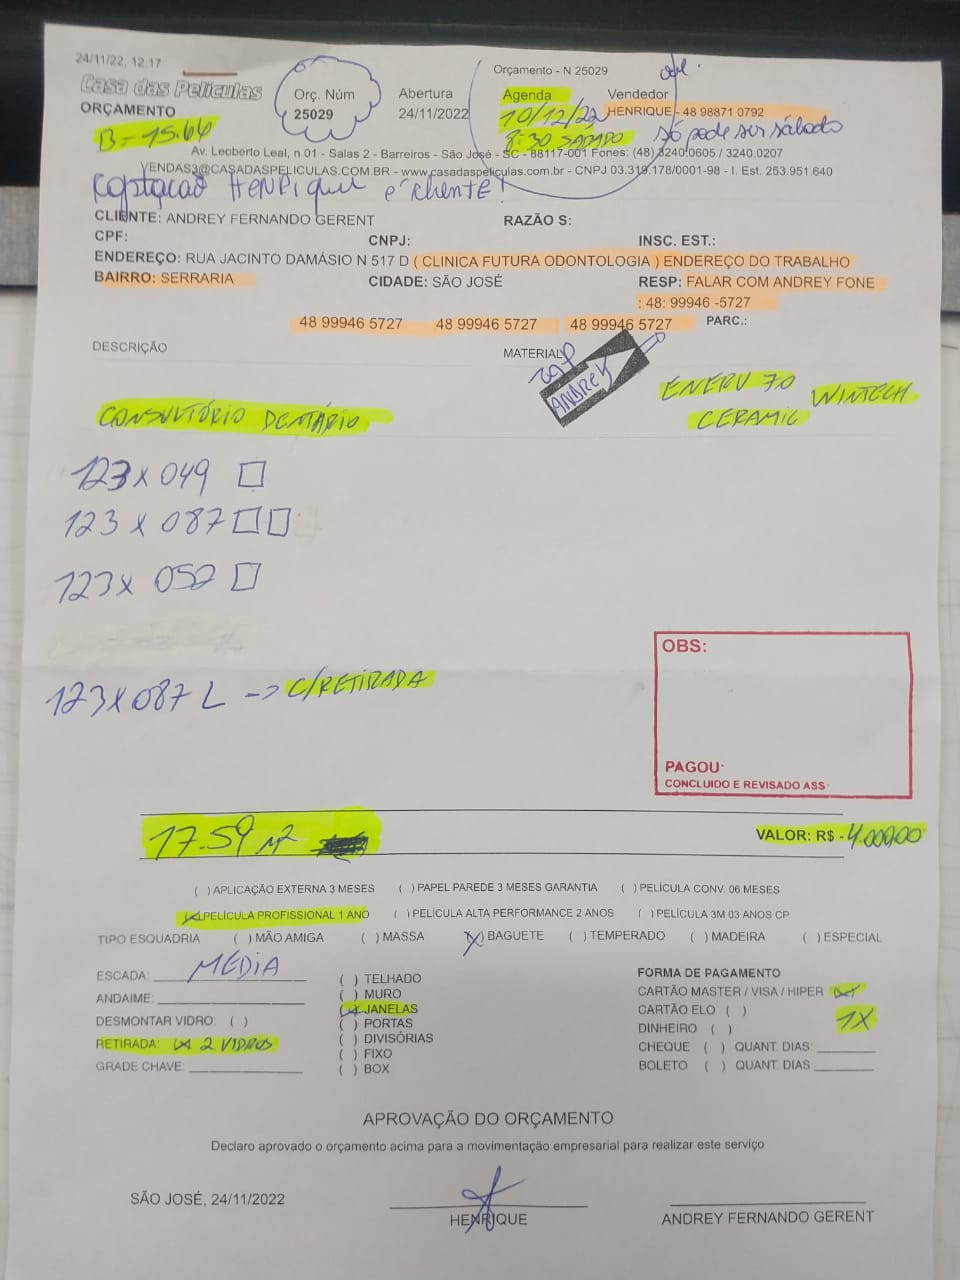 24/11/22, 12:17
Orçamento - N 25029
Casa das Películas
ORÇAMENTO
Orç. Núm
25029
Abertura
24/11/2022
Agenda
10/12/22
8:30 SABADO
Vendedor
HENRIQUE - 48 98871 0792
só pode ser sábado
B = 15.64
Av. Leoberto Leal, n 01 - Salas 2 - Barreiros - São José - SC - 88117-001 Fones: (48) 3240.0605 / 3240.0207
VENDAS3@CASADASPELICULAS.COM.BR - www.casadaspeliculas.com.br - CNPJ 03.319.178/0001-98 - I. Est. 253.951.640
Captação HENRIQUE é cliente!
CLIENTE: ANDREY FERNANDO GERENT RAZÃO S:
CPF: CNPJ: INSC. EST.:
ENDEREÇO: RUA JACINTO DAMÁSIO N 517 D ( CLINICA FUTURA ODONTOLOGIA ) ENDEREÇO DO TRABALHO
BAIRRO: SERRARIA CIDADE: SÃO JOSÉ RESP: FALAR COM ANDREY FONE
: 48: 99946 -5727
48 99946 5727 48 99946 5727 48 99946 5727 PARC.:
DESCRIÇÃO MATERIAL
ANDREY
ENERV 70 WINTECH
CERAMIC
CONSULTÓRIO DENTÁRIO
123 x 049
123 x 087
123 x 052
123 x 087 L -> C/RETIRADA
OBS:
PAGOU:
CONCLUIDO E REVISADO ASS:
17.59 m²
VALOR: R$ - 4.000,00
( ) APLICAÇÃO EXTERNA 3 MESES ( ) PAPEL PAREDE 3 MESES GARANTIA ( ) PELÍCULA CONV. 06 MESES
(x) PELÍCULA PROFISSIONAL 1 ANO ( ) PELÍCULA ALTA PERFORMANCE 2 ANOS ( ) PELÍCULA 3M 03 ANOS CP
TIPO ESQUADRIA ( ) MÃO AMIGA ( ) MASSA (x) BAGUETE ( ) TEMPERADO ( ) MADEIRA ( ) ESPECIAL
ESCADA: MÉDIA
ANDAIME:
DESMONTAR VIDRO: ( )
RETIRADA: (x) 2 VIDROS
GRADE CHAVE:
( ) TELHADO
( ) MURO
(x) JANELAS
( ) PORTAS
( ) DIVISÓRIAS
( ) FIXO
( ) BOX
FORMA DE PAGAMENTO
CARTÃO MASTER / VISA / HIPER (x)
CARTÃO ELO ( ) 1X
DINHEIRO ( )
CHEQUE ( ) QUANT. DIAS:
BOLETO ( ) QUANT. DIAS
APROVAÇÃO DO ORÇAMENTO
Declaro aprovado o orçamento acima para a movimentação empresarial para realizar este serviço
SÃO JOSÉ, 24/11/2022
HENRIQUE
ANDREY FERNANDO GERENT